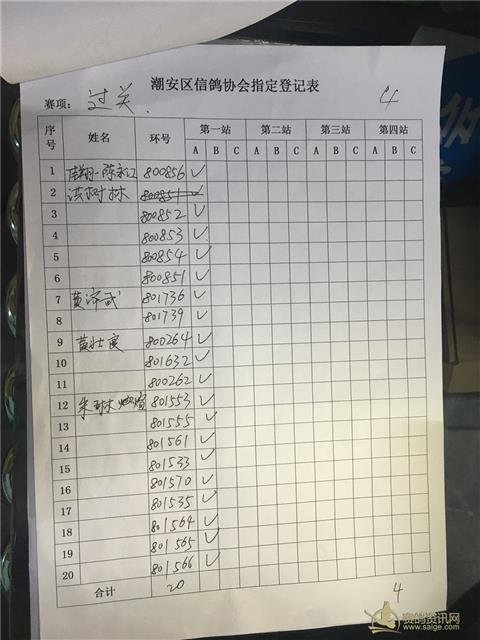 潮安区信鸽协会指定登记表
赛项： 过关. 4
序号 姓名 环号 第一站 第二站 第三站 第四站
A B C A B C A B C A B C
1 佳翔-陈永江 800856 ✓
2 洪树林 800851 ✓
3 800852 ✓
4 800853 ✓
5 800854 ✓
6 800851 ✓
7 黄济武 801736 ✓
8 801739 ✓
9 黄壮 800264 ✓
10 801632 ✓
11 800262 ✓
12 801553 ✓
13 801555 ✓
14 801561 ✓
15 801533 ✓
16 801570 ✓
17 801535 ✓
18 801564 ✓
19 801565 ✓
20 801566 ✓
合计 20 4
赛鸽资讯网
www.saige.com